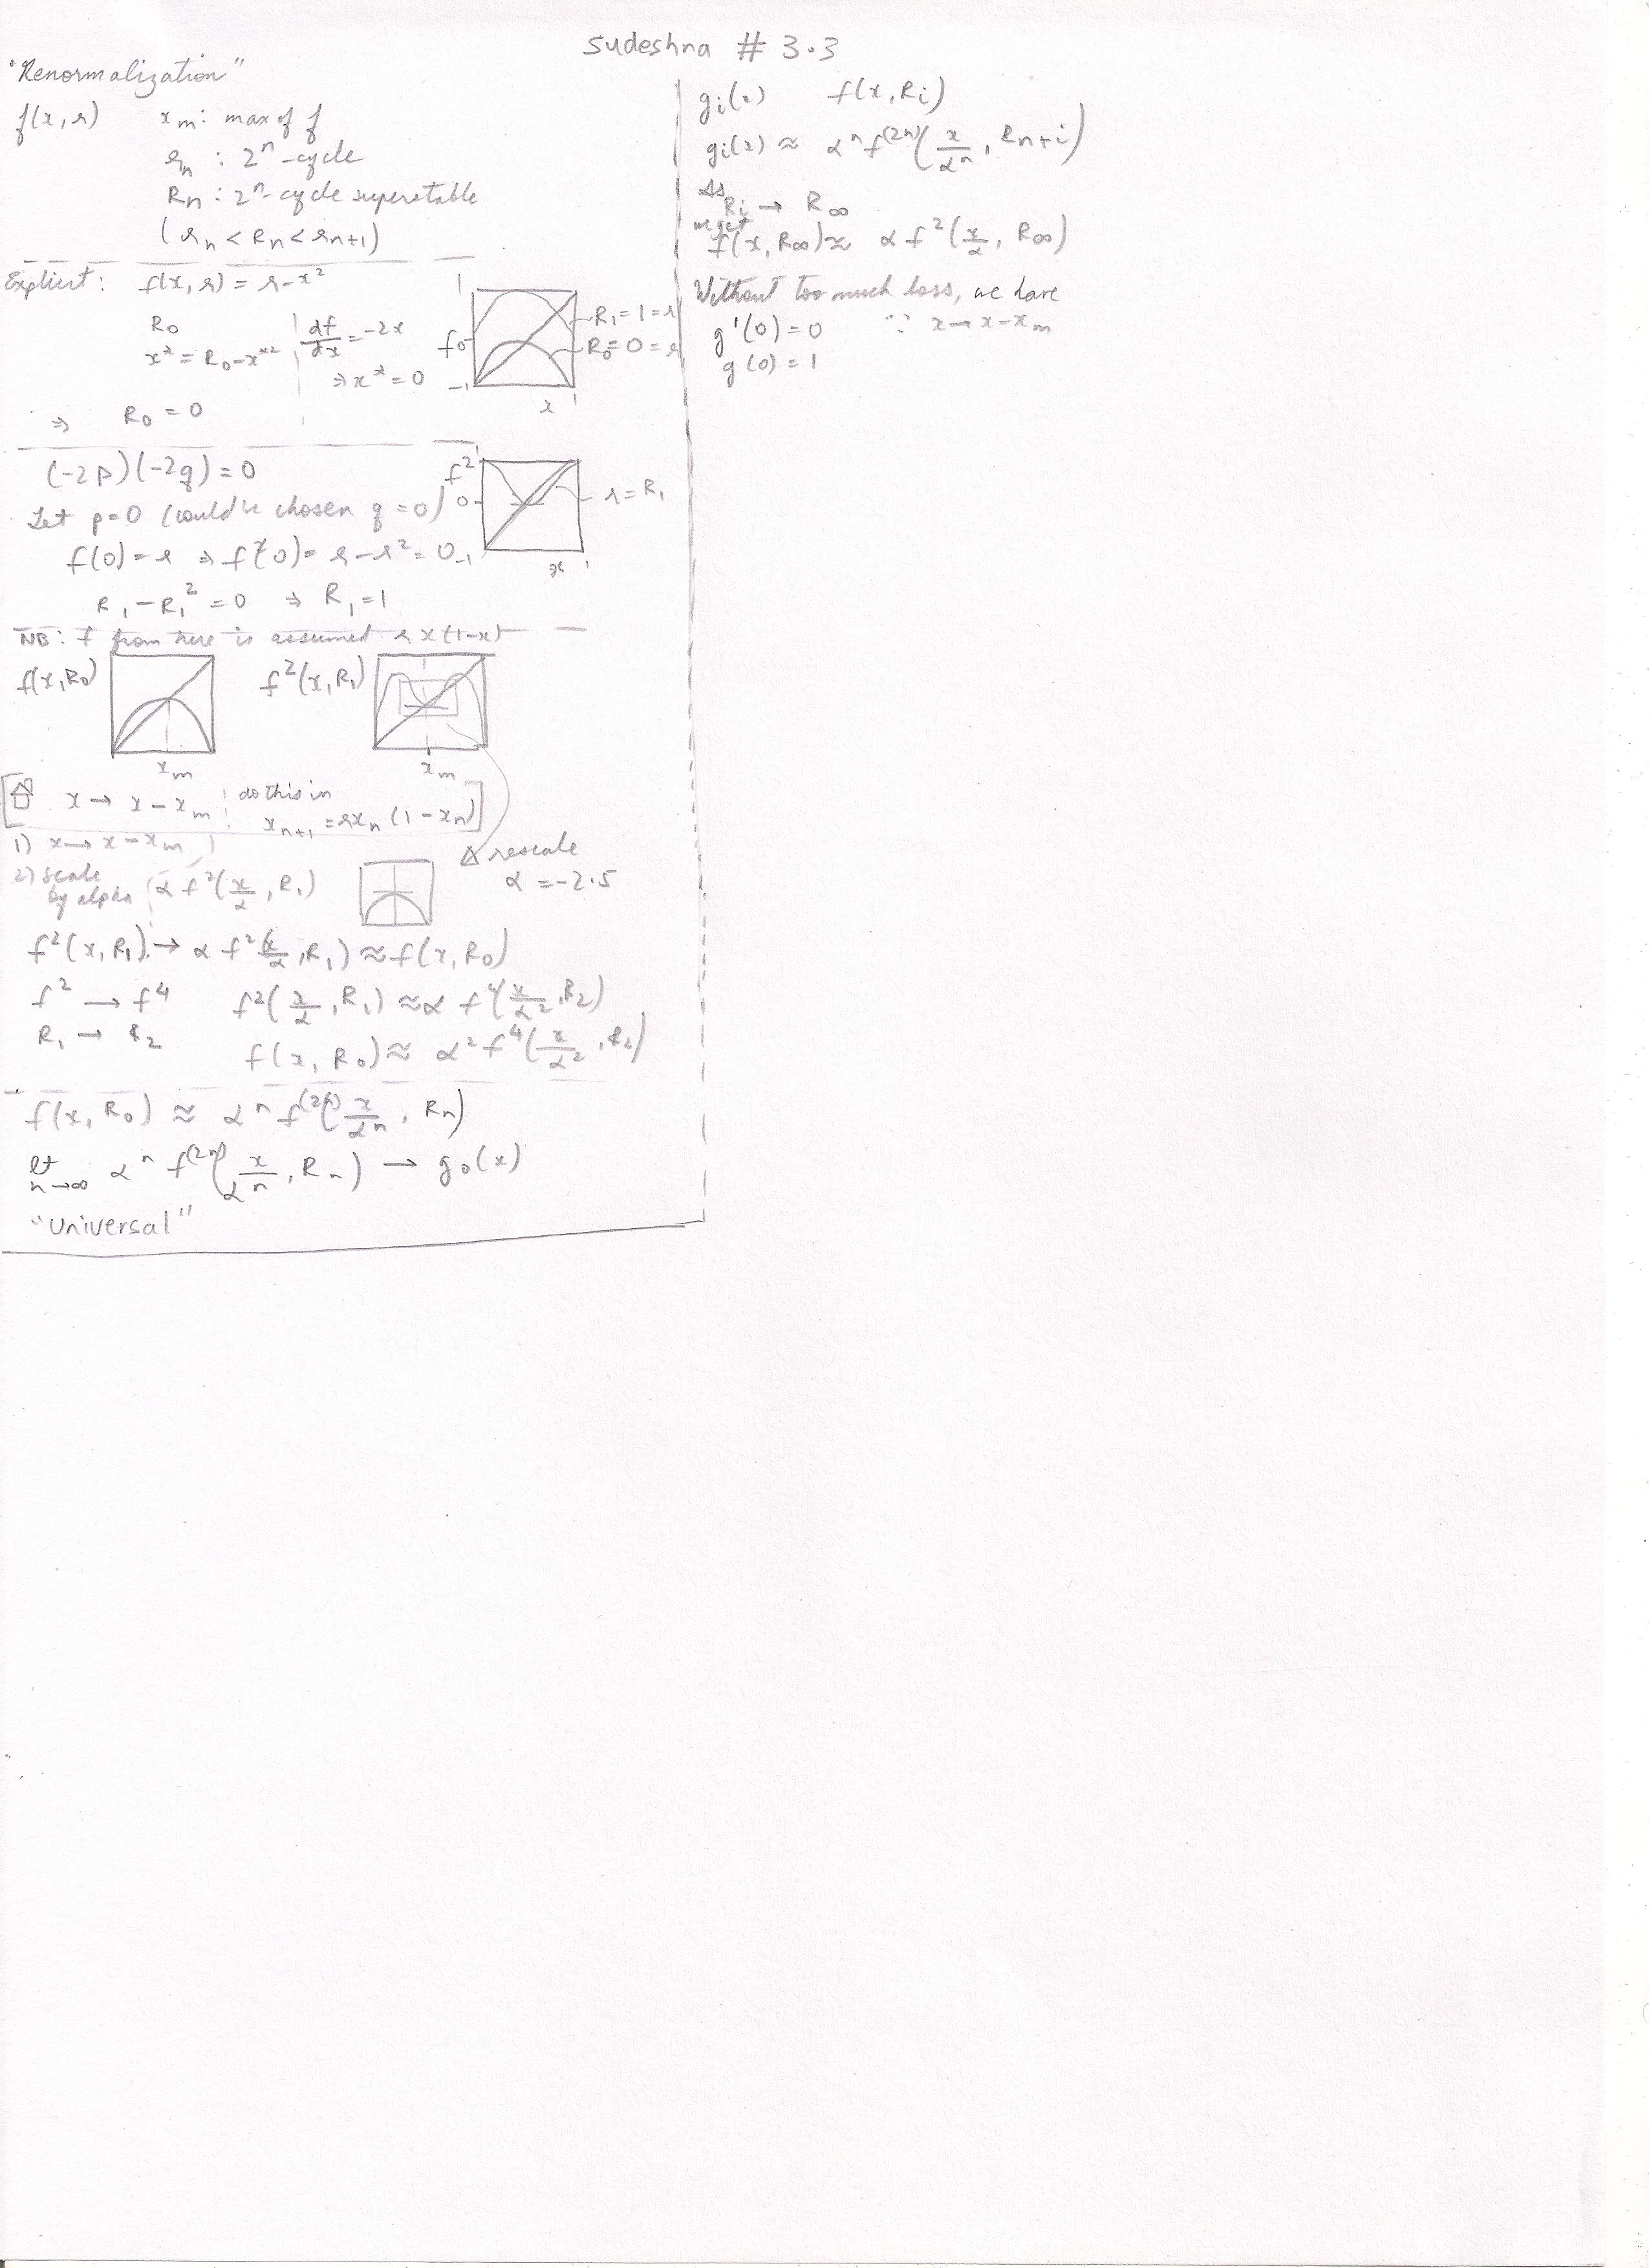 Sudeshna # 3.3
"Renormalization"
f(x, r) xₘ: max of f
rₙ : 2ⁿ-cycle
Rₙ : 2ⁿ-cycle superstable
(rₙ < Rₙ < rₙ₊₁)
Explicit: f(x, r) = r - x²
R₀
x* = R₀ - x*²
df/dx = -2x
⇒ x* = 0
⇒ R₀ = 0
1
f 0
-1
x 1
R₁ = 1 = r
R₀ = 0 = r
(-2p)(-2q) = 0
Let p = 0 (could've chosen q = 0)
f(0) = r ⇒ f²(0) = r - r² = 0
R₁ - R₁² = 0 ⇒ R₁ = 1
f² 1
0
-1
x 1
r = R₁
NB: f from here is assumed r x (1-x)
f(x, R₀) f²(x, R₁)
xₘ xₘ
[⇧ x → x - xₘ do this in
xₙ₊₁ = rxₙ (1 - xₙ)]
1) x → x - xₘ
2) Scale
by alpha α f²(x/α, R₁)
rescale
α = -2.5
f²(x, R₁) → α f²(x/α, R₁) ≈ f(x, R₀)
f² → f⁴ f²(x/α, R₁) ≈ α f⁴(x/α², R₂)
R₁ → R₂
f(x, R₀) ≈ α² f⁴(x/α², R₂)
f(x, R₀) ≈ αⁿ f⁽²ⁿ⁾(x/αⁿ, Rₙ)
lt n→∞ αⁿ f⁽²ⁿ⁾(x/αⁿ, Rₙ) → g₀(x)
"Universal"
gᵢ(x) f(x, Rᵢ)
gᵢ(x) ≈ αⁿ f⁽²ⁿ⁾(x/αⁿ, Rₙ₊ᵢ)
As
Rᵢ → R∞
we get
f(x, R∞) ≈ α f²(x/α, R∞)
Without too much loss, we have
g'(0) = 0 ∵ x → x - xₘ
g(0) = 1